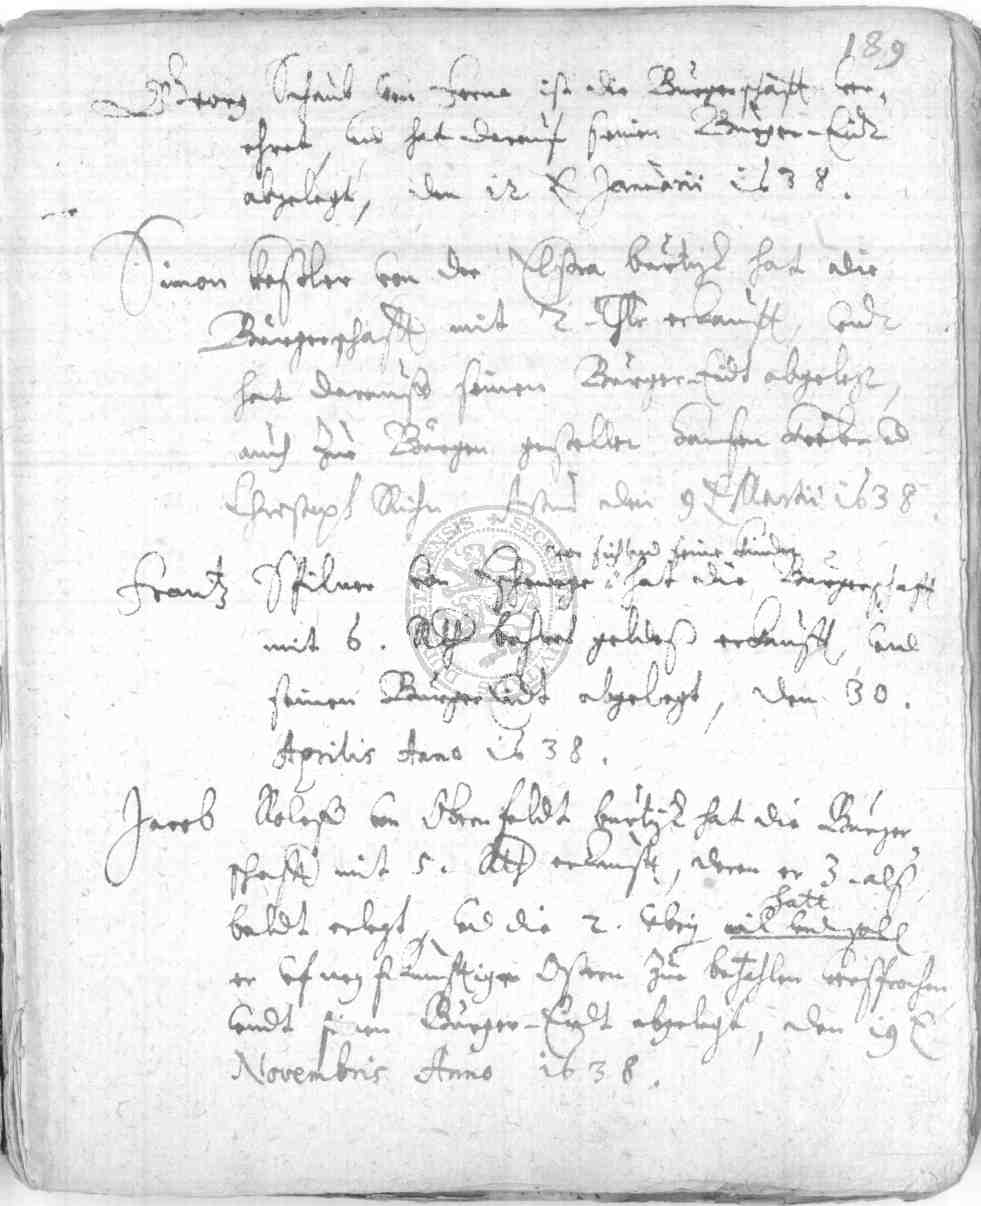 189
Georg Schaub von ist die Bürgerschafft ver,
ehret, und hat darauf seinen Bürger-Eidt
abgelegt, den 12 Januarii 1638.
Simon Keßler von der bürtigk hat die
Bürgerschafft mit 2 erkaufft, undt
hat darauff seinen Bürger-Eidt abgelegt,
auch zue Bürgen gestellet und
Christoph den 9 Martii 1638.
vor sich und seine Kinder
Frantz von hat die Bürgerschafft
mit 6. Rth geldes erkaufft, und
seinen Bürger Eidt abgelegt, den 30.
Aprilis Anno 1638.
Jacob von bürtigk hat die Bürger,
schafft mit 5. Rth erkaufft, deren er 3. als
baldt erlegt, und die 2. übrig
hatt
er uf negstkünfftige Ostern zue bezahlen versprochen
undt seinen Bürger-Eidt abgelegt, den 19
Novembris Anno 1638.